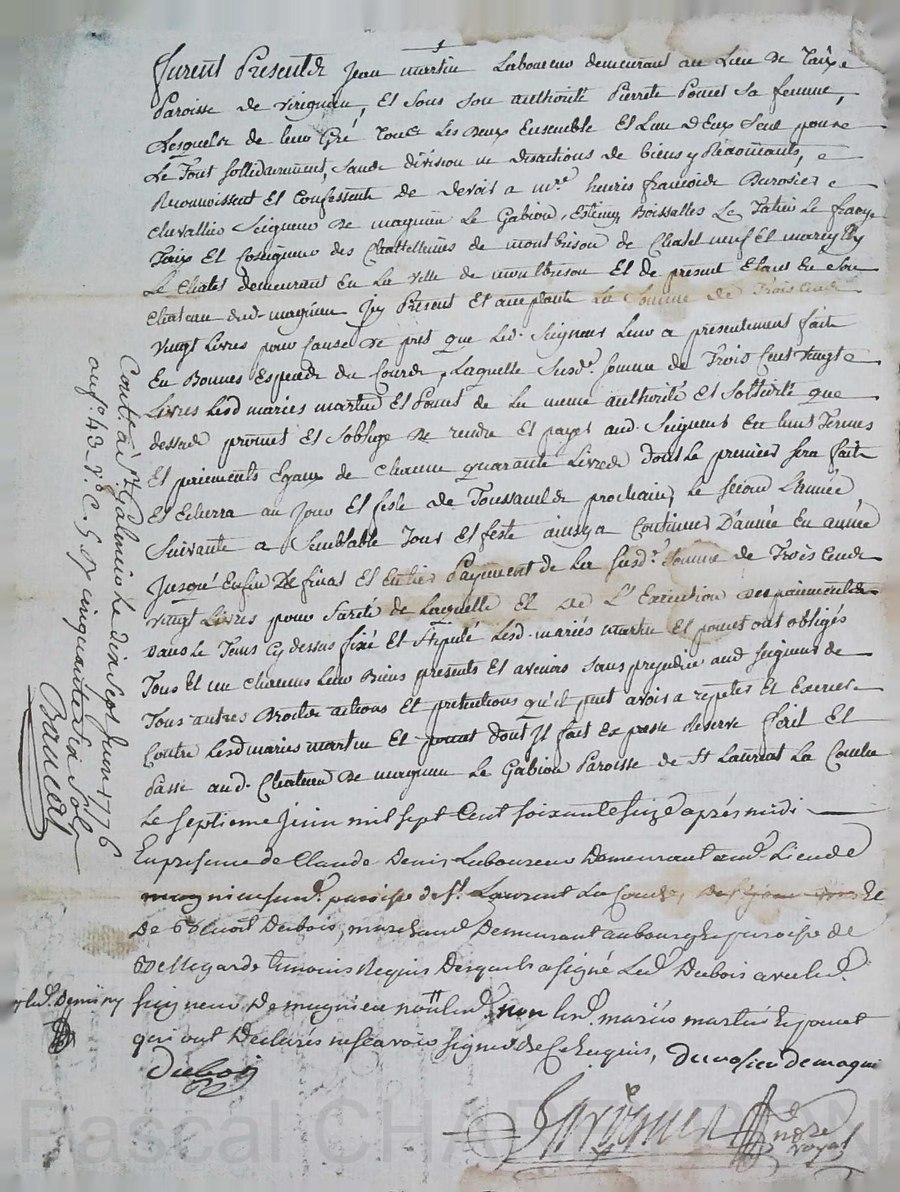 furent Presents Jean martin Laboureur demeurant au Lieu de Taix
Paroisse de virignieu, Et sous son authorité Pierrete Poncet sa femme,
Lesquels de leur Gré Tous Les deux Ensemble Et L'un d'Eux seul pour
Le Tout sollidairement, sans division ni disactions de biens y Renonçants,
Reconnoissent Et Confessent de devoir a mre henris francois Durosier
chevallier Seigneur de magnieu Le Gabion, Boissalles Le
Taix Et Coseigneur des Chattellenies de montbrison de Chatel neuf Et marcilly
Le Chatel demeurant En La ville de montbrison Et de present Etant En son
Chateau dud. magnieu Icy Present Et acceptant La Somme de Trois Cents
vingt Livres pour Cause de pret que Led. Seigneur Leur a presentement fait
En Bonnes Especes du Cours, Laquelle Susdte. somme de Trois Cent vingt
Livres Lesd maries martin Et Poncet de La meme authorité Et sollidité que
dessus promet Et s'oblige de rendre Et payer aud. Seigneur En huit Termes
Et paiements Egaux de Chacun quarante Livres dont Le premier sera fait
Et Echerra au Jour Et feste de Toussaints prochain, Le second L'année
Suivante a Semblable Jour Et feste ainsy a Continuer D'année En année
Jusqu'é Enfin De final Et Entier Payement de La susdte. somme de Trois Cents
vingt Livres pour Sureté de Laquelle Et de L'Execution des paiements
dans Le Tems Cy dessus fixé Et Stipulé Lesd. mariés martin Et poncet ont obligés
Tous Et un Chacuns Leur Biens presents Et avenirs sans prejudice aud seigneur de
Tous autres Droits actions Et pretentions qu'il peut avoir a repeter Et Exercer
Contre Lesd maries martin Et poncet dont Il fait Expresse Reserve fait Et
Passé aud. Chateau de magnieu Le Gabion Paroisse de St Laurent La Conche
Le Septieme Juin mil sept Cent soixante Seize après midi
En presence de Claude Denis Laboureur Demeurant aud. Lieu de
magnieu susd. paroisse de St. Laurent La Conche, Et
De Benoit Dubois, marchand Demeurant au bourg Et paroisse de
Bellegarde temoins Requis Desquels a signé Led. Dubois avec led.
Seigneur De magnieu non led. non lesd. mariés martin Et poncet
qui ont Déclarés ne scavoir signer de Ce Enquis, durosier de magni
Dubois
nore
royal
Contlé. à St Galmier Le dix sept Juin 1776
au fo. 43 vo. C. 5. cinquante six sols
Denis
Pascal CHAMBRION